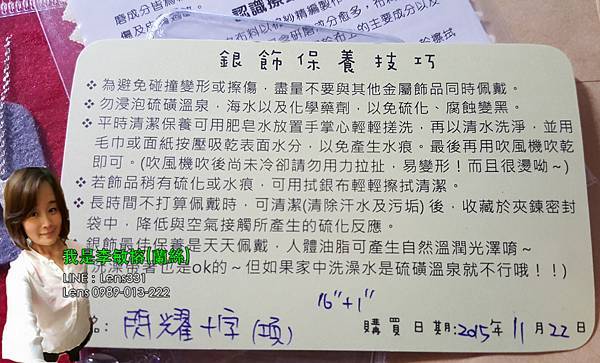 認識擦
銀飾保養技巧
❖ 為避免碰撞變形或擦傷，盡量不要與其他金屬飾品同時佩戴。
❖ 勿浸泡硫磺溫泉，海水以及化學藥劑，以免硫化、腐蝕變黑。
❖ 平時清潔保養可用肥皂水放置手掌心輕輕搓洗，再以清水洗淨，並用
毛巾或面紙按壓吸乾表面水分，以免產生水痕。最後再用吹風機吹乾
即可。(吹風機吹後尚未冷卻請勿用力拉扯，易變形！而且很燙呦～)
❖ 若飾品稍有硫化或水痕，可用拭銀布輕輕擦拭清潔。
❖ 長時間不打算佩戴時，可清潔(清除汗水及污垢)後，收藏於夾鍊密封
袋中，降低與空氣接觸所產生的硫化反應。
銀飾最佳保養是天天佩戴，人體油脂可產生自然溫潤光澤唷～
洗澡帶著也是ok的～但如果家中洗澡水是硫磺溫泉就不行哦！！)
我是李敏榕(蘭絲)
LINE：Lens331
Lens 0989-013-222
16"+1"
名: 閃耀十字(項) 購買日期:2015年11月22日